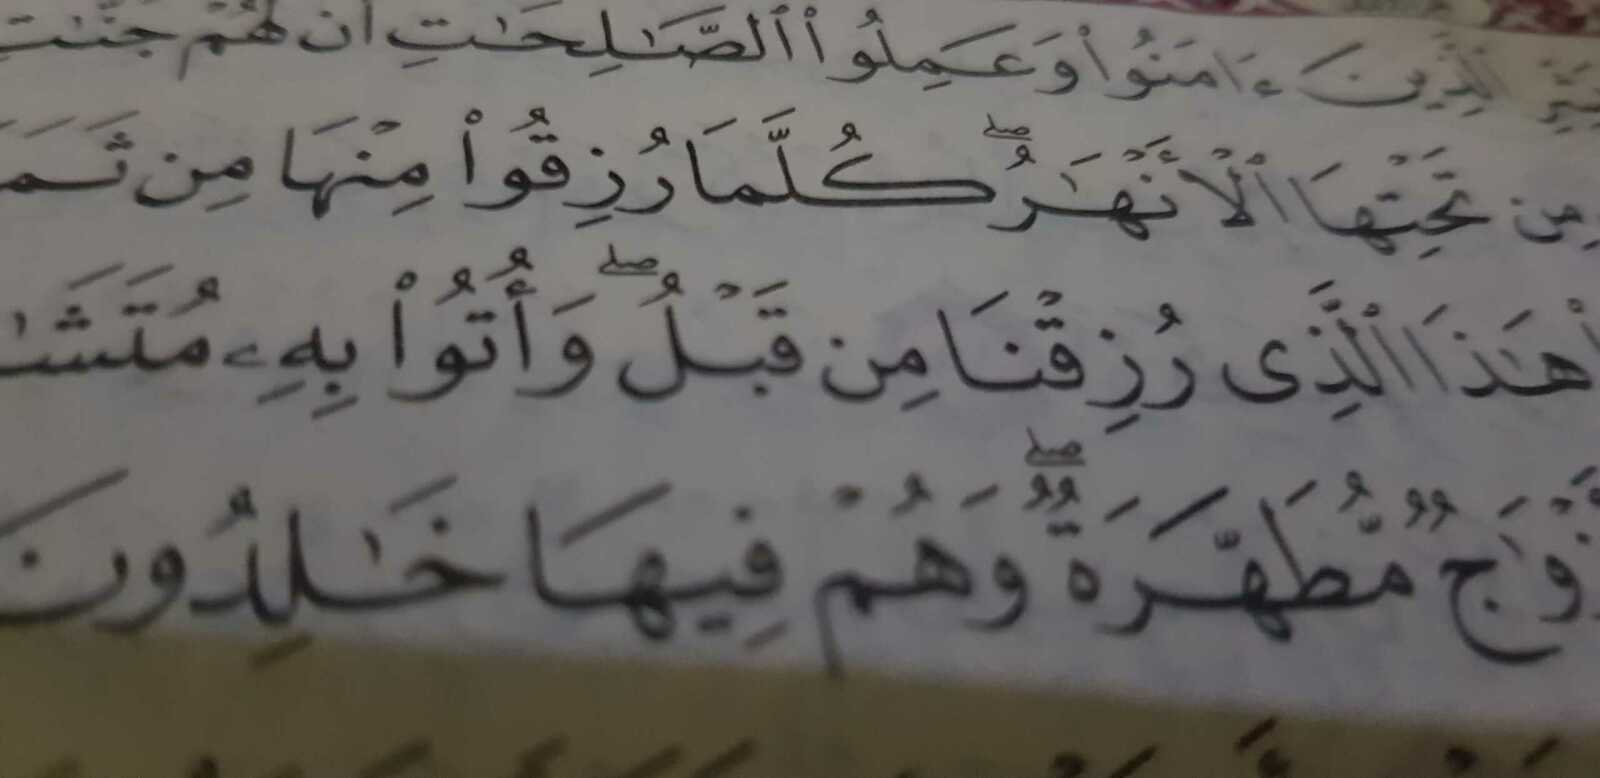 ٱلَّذِينَ ءَامَنُوا۟ وَعَمِلُوا۟ ٱلصَّـٰلِحَـٰتِ أَنَّ لَهُمْ جَنَّـٰتٍ
مِن تَحْتِهَا ٱلْأَنْهَـٰرُ ۖ كُلَّمَا رُزِقُوا۟ مِنْهَا مِن
هَـٰذَا ٱلَّذِى رُزِقْنَا مِن قَبْلُ ۖ وَأُتُوا۟ بِهِۦ
مُّطَهَّرَةٌ ۖ وَهُمْ فِيهَا خَـٰلِدُونَ